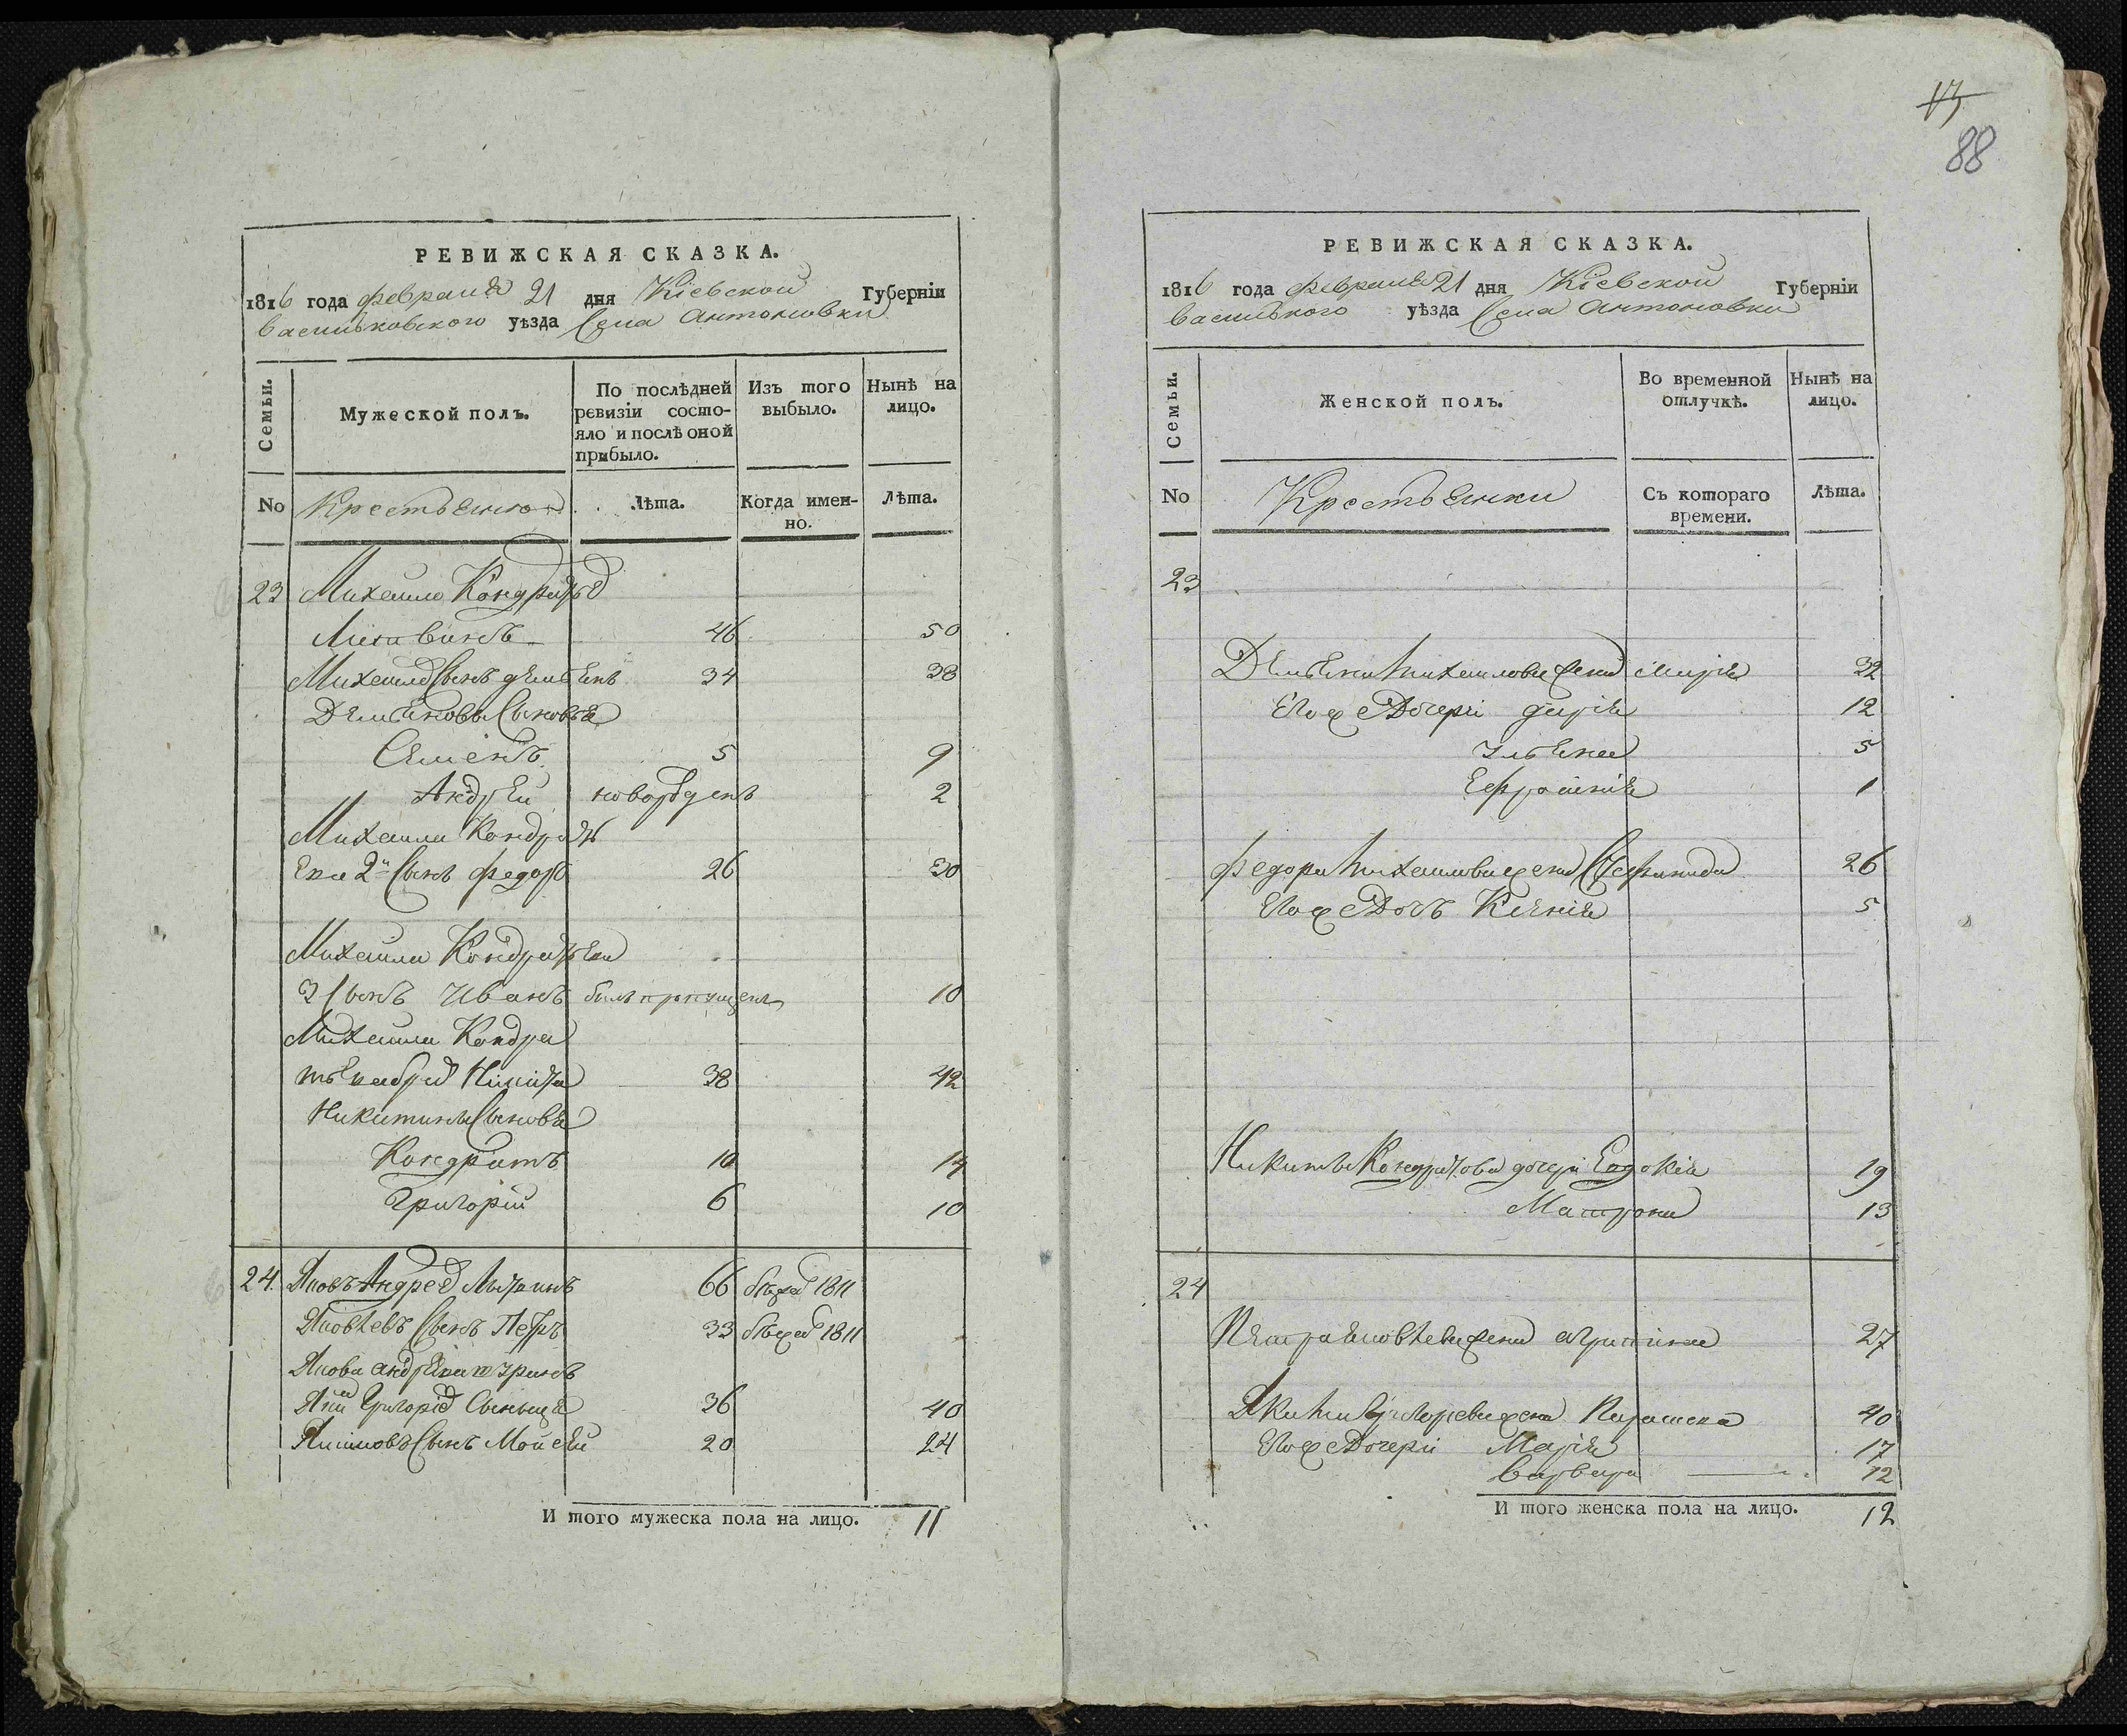 РЕВИЖСКАЯ СКАЗКА.
1816 года февраля 21 дня Кіевской Губерніи
Васильковского уѣзда Села Антоновки
Семьи.
Мужеской полъ.
По послѣдней ревизіи состо-
яло и послѣ оной прибыло.
Изъ того выбыло.
Нынѣ на лицо.
No
Лѣта.
Когда имен-
но.
Лѣта.
23 Михайло
46 50
Михайлов Сынъ 34 38
Сыновья
Семенъ 5 9
Андрей новорожденъ 2
Михайла Кондрать
ева 2й Сынъ Федоръ 26 30
Михайла Кондратьева
3 Сынъ Иванъ былъ пропущенъ 10
Михайла Кондра
тьева братъ Никита 38 42
Никитины Сыновья
Кондратъ 10 14
Григорій 6 10
24. Яковъ Андреев 66 1811
Яковлевъ Сынъ Петръ 33 1811
Якова
Яким Григоріев 36 40
Якимовъ Сынъ Мойсей 20 24
И того мужеска пола на лицо. 11
13
88
РЕВИЖСКАЯ СКАЗКА.
1816 года февраля 21 дня Кіевской Губерніи
уѣзда Села Антоновки
Семьи.
Женской полъ.
Во временной отлучкѣ.
Нынѣ на лицо.
No
Крестьянки
Съ котораго времени.
Лѣта.
23
Михайлова жена Марія 32
Его ж Дочери Дарія 12
Ульяна 5
Ефросинія 1
Федора Михайлова жена Степанида 26
Его ж Дочь Ксенія 5
Никиты Кондратова дочери Евдокія 19
Матрона 13
24
Петра Яковлева жена 27
Якима Григорьева жена Параскева 40
Его ж Дочери Марія 17
Варвара 12
И того женска пола на лицо. 12